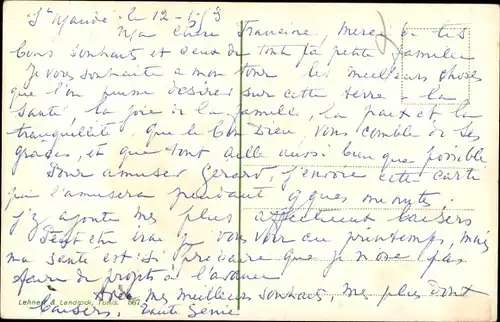 St Mandé le 12-1-53
Ma chère Francine, merci de tes
bons souhaits et ceux de toute ta petite famille
Je vous souhaite à mon tour les meilleures choses
que l'on puisse désirer sur cette terre - la
santé, la joie de la famille, la paix et la
tranquillité. Que le bon Dieu, vous comble de ses
graces, et que tout aille aussi bien que possible
Pour amuser Gérard, j'envoie cette carte
qui l'amusera pendant qques minutes.
j'y ajoute mes plus affectueux baisers
Peut être irai-je vous voir au printemps, mais
ma santé est si précaire que je n'ose pas
faire de projets à l'avance
Avec mes meilleurs souhaits, mes plus doux
Lehnert & Landrock, Tunis.
baisers, Tante Genie